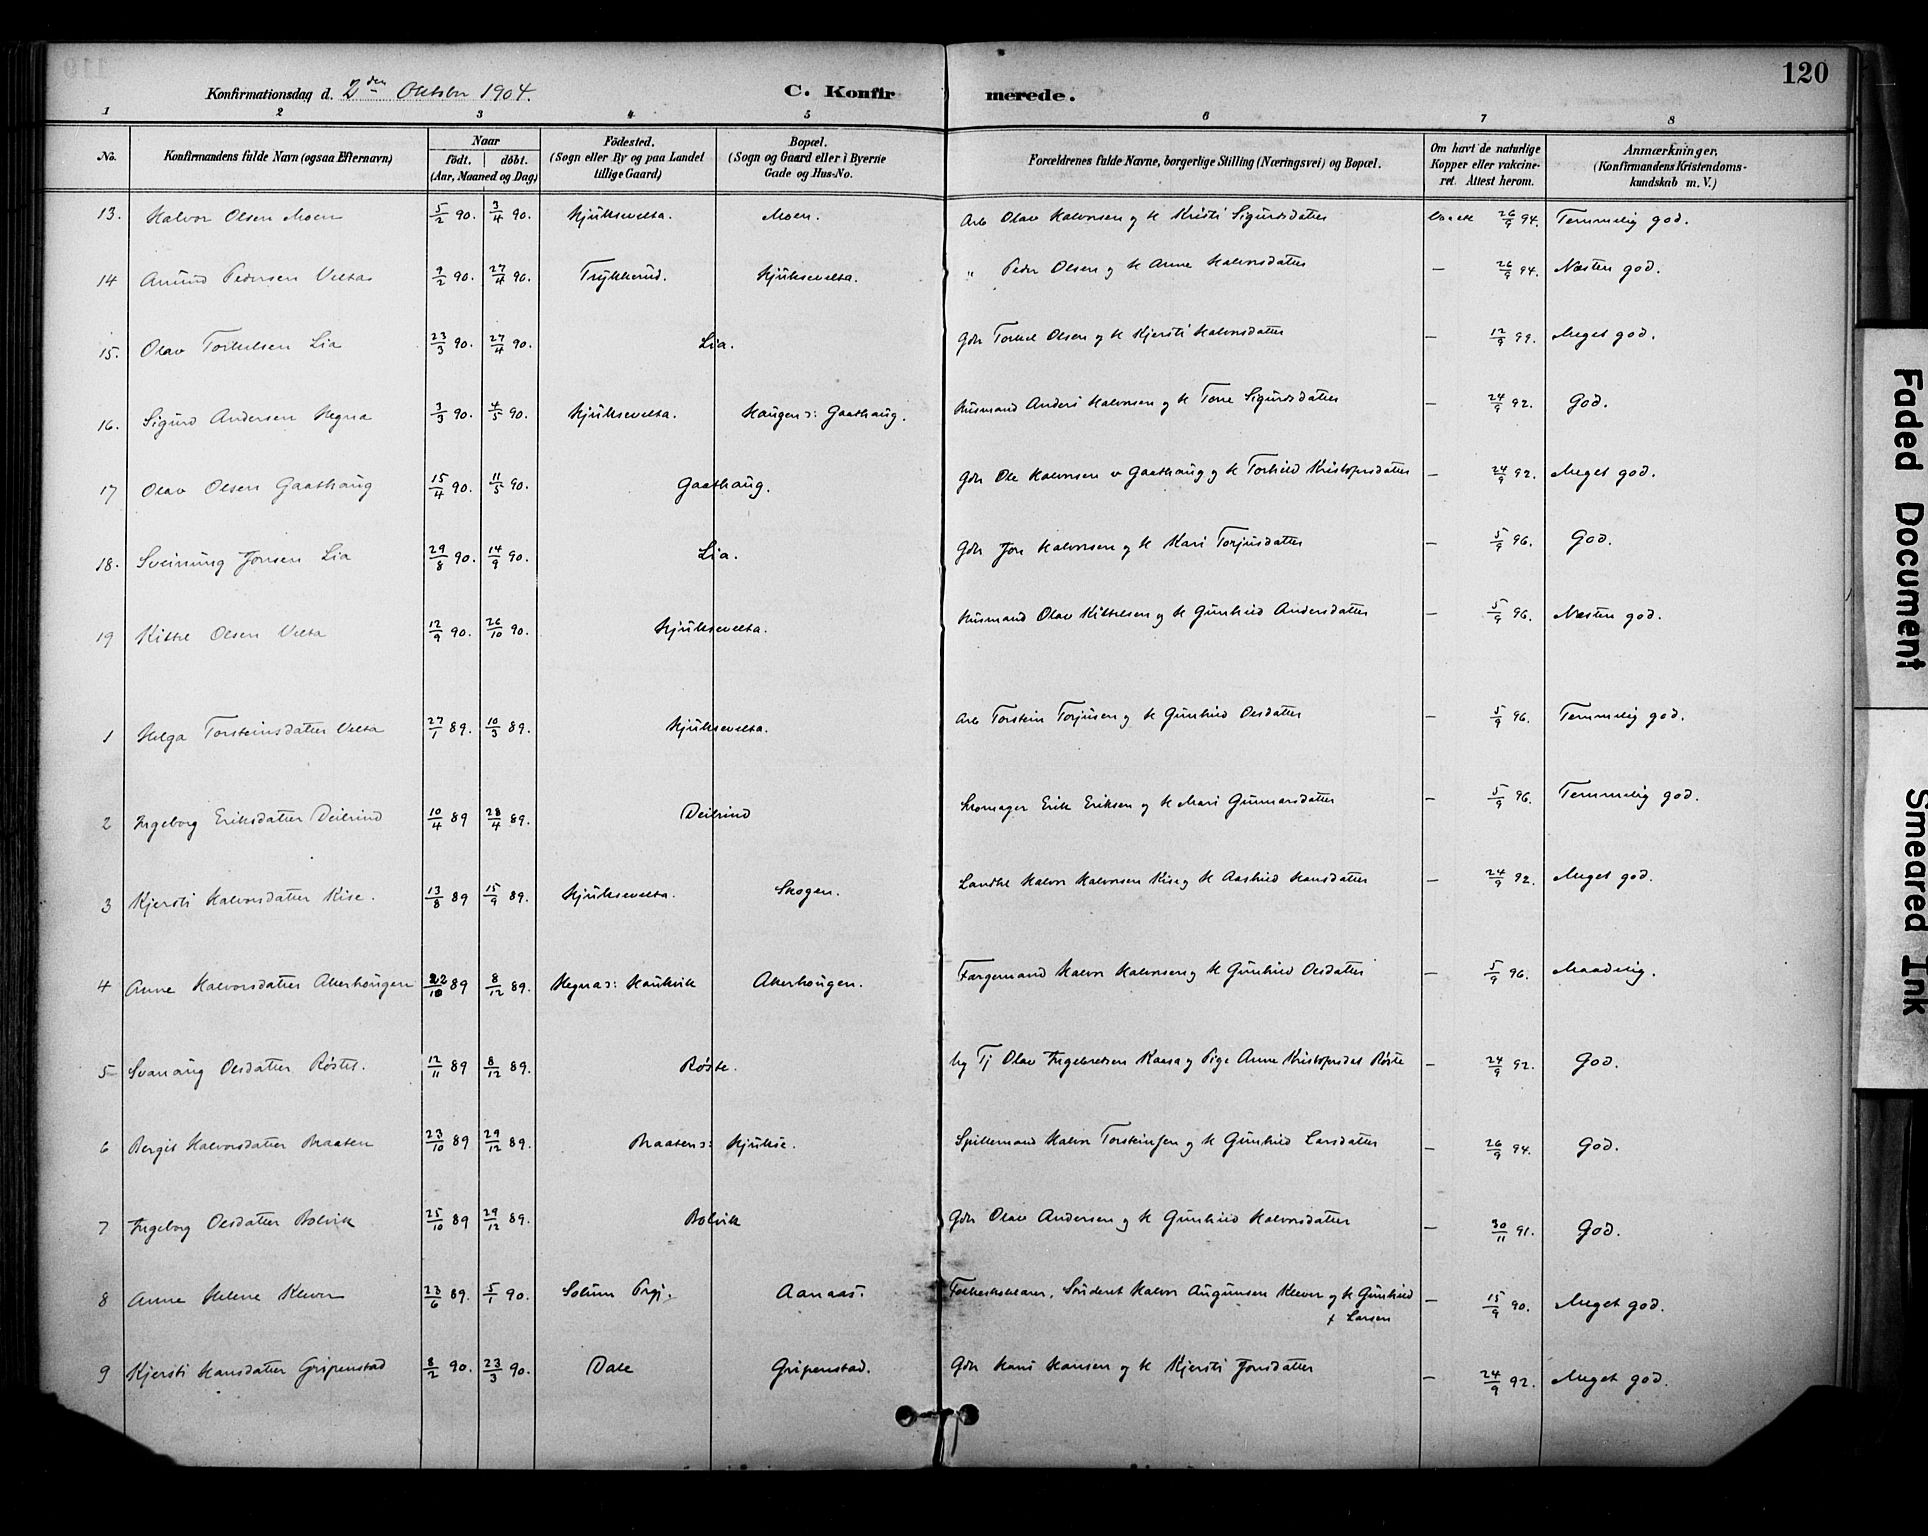 120
Konfirmationsdag d. 2den Oktober 1904.
C. Konfirmerede.
1 2 3 4 5 6 7 8
No. Konfirmandens fulde Navn (ogsaa Efternavn) Naar født. | døbt. (Aar, Maaned og Dag) Födested. (Sogn eller By og paa Landet tillige Gaard) Bopæl. (Sogn og Gaard eller i Byerne Gade og Hus-No. Forældrenes fulde Navne, borgerlige Stilling (Næringsvei) og Bopæl. Om havt de naturlige Kopper eller vakcineret. Attest herom. Anmærkninger, (Konfirmandens Kristendomskundskab m. V.)
13. Halvor Olsen Moen 5/2 90. 3/4 90. Hjuksevelta. Moen. Arb Olav Halvorsen og H Kristi Sigurdsdatter 26/9 94. Temmelig god.
14 Amund Pedersen Velta 9/2 90. 27/4 90. Trykkerud. Hjuksevelta. " Peder Olsen og H Anne Halvorsdatter — 26/9 94. Næsten god.
15. Olav Torkelsen Lia 23/3 90. 27/4 90. Lia. Gdr Torkel Olsen og H Kjersti Halvorsdatter — 12/9 99. Meget god.
16. Sigurd Andersen Hegna 3/3 90. 4/5 90. Hjuksevelta. Haugen ɔ: Gaathaug. Husmand Anders Halvorsen og H Tone Sigurdsdatter — 24/9 92. God.
17 Olav Olsen Gaathaug 15/4 90. 11/5 90. Gaathaug. Gdr Ole Halvorsen v Gaathaug og H Torhild Kristofersdatter — 24/9 92. Meget god.
18. Sveinung Jonsen Lia 29/8 90. 14/9 90. Lia. Gdr Jon Halvorsen og H Kari Torjusdatter — 5/9 96. God.
19 Kittel Olsen Velta 12/9 90. 26/10 90. Hjuksevelta. Husmand Olav Kittelsen og H Gunhild Andersdatter — 5/9 96. Næsten god.
1 Helga Torsteinsdatter Velta 27/1 89. 10/3 89. Hjuksevelta. Arb Torstein Torjusen og H Gunhild Olsdatter — 5/9 96. Temmelig god.
2 Ingeborg Eriksdatter Deilrind 10/4 89 28/4 89. Deilrind Skomager Erik Eriksen og H Mari Gunnarsdatter — 5/9 96. Temmelig god.
3 Kjersti Halvorsdatter Kise. 13/8 89 15/9 89. Hjuksevelta. Skogen. Landhl Halvor Halvorsen Kise og H Aashild Hansdatter — 24/9 92. Meget god.
4 Anne Halvorsdatter Akerhougen 22/10 89 8/12 89. Hegna ɔ: Haukvik Akerhougen. Færgemand Halvor Halvorsen og H Gunhild Olsdatter — 5/9 96. Maadelig.
5 Svanaug Olsdatter Røste. 12/11 89 8/12 89. Røste. Ug Tj Olav Ingebretsen Kaasa og Pige Anne Kristofersdat Røste — 24/9 92. God.
6 Bergit Halvorsdatter Braaten 23/10 89 29/12 89. Braaten ɔ: Hjukse. Spillemand Halvor Torsteinsen og H Gunhild Larsdatter — 26/9 94. God.
7 Ingeborg Olsdatter Bolvik 25/10 89 29/12 89. Bolvik Gdr Olav Andersen og H Gunhild Halvorsdatter — 30/11 91. God.
8 Anne Helene Klever 23/6 89. 5/1 90. Solum Prgj. Aanaas. Folkeskolelærer, Sønderet Halvor Augunsen Klever og H Gunhild — 15/9 90. Meget god.
f Larsen
9 Kjersti Hansdatter Gripenstad 8/2 90. 23/3 90. Dale Gripenstad. Gdr Hans Hansen og H Kjersti Jonsdatter — 24/9 92. Meget god.
Faded Document
Smeared Ink